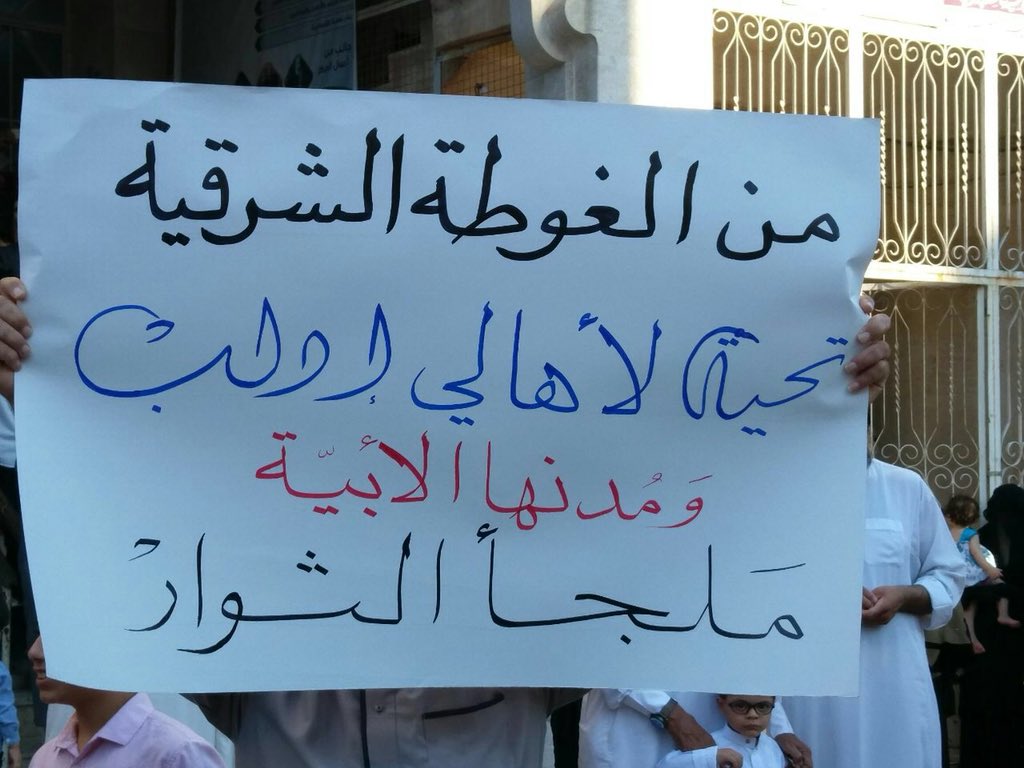 من الغوطة الشرقية
تحية لأهالي إدلب
وَمُدنها الأبيّة
مَلجأ الثوار